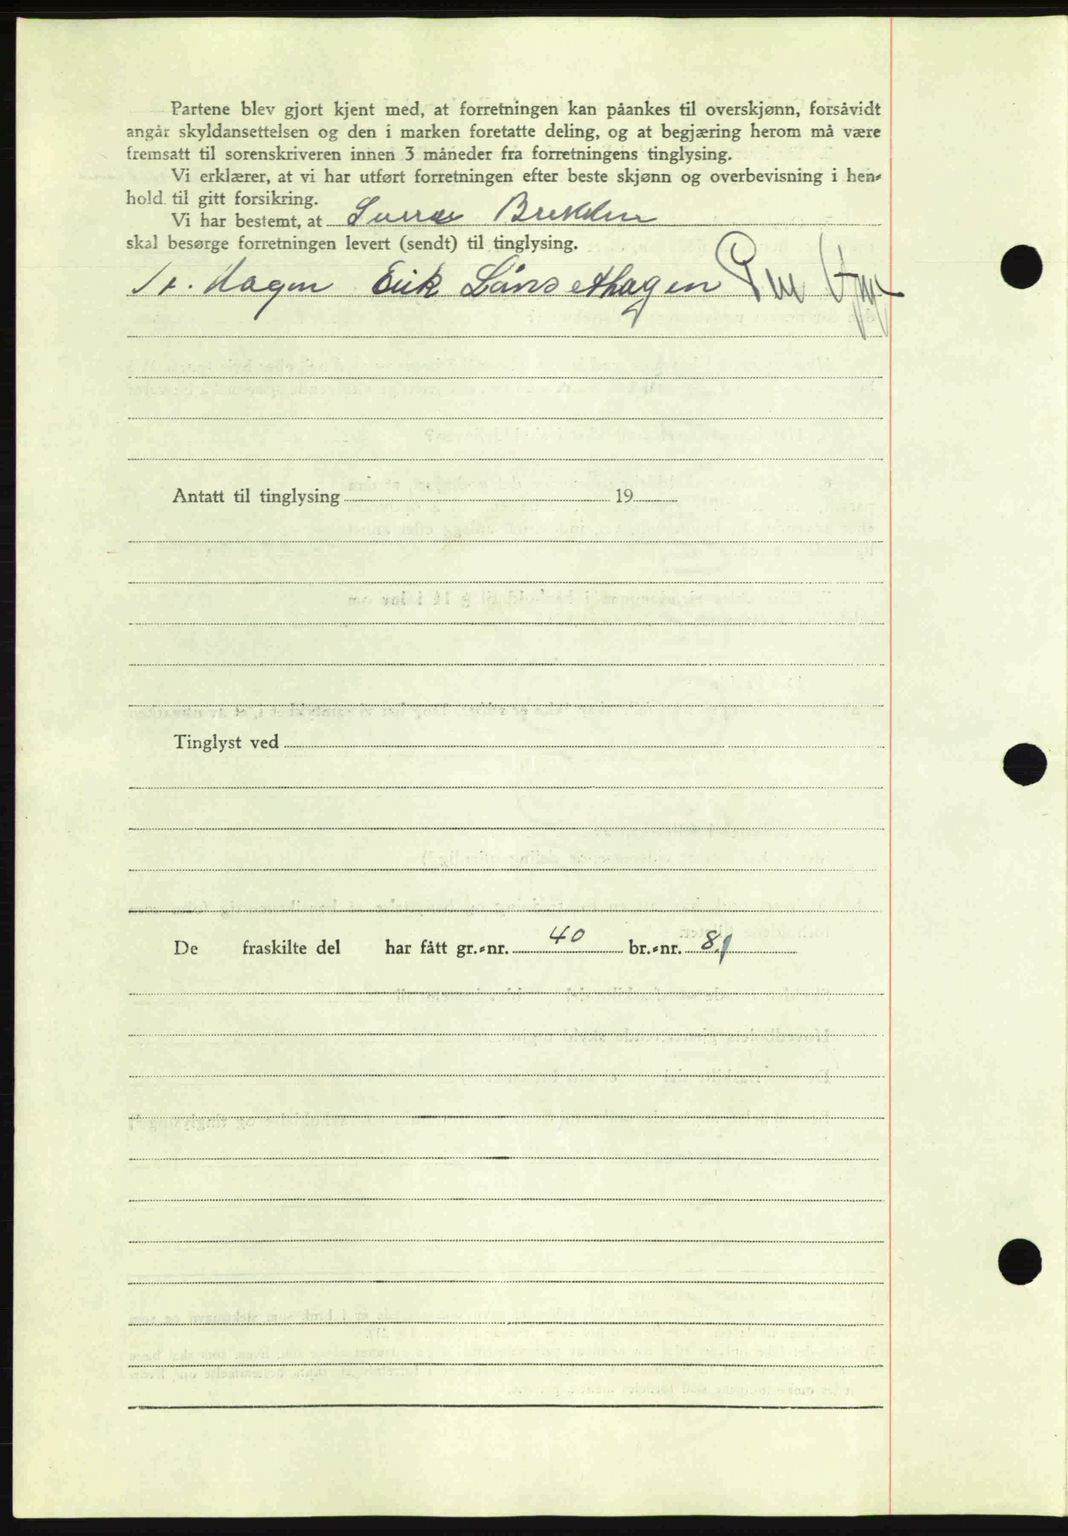 Partene blev gjort kjent med, at forretningen kan påankes til overskjønn, forsåvidt
angår skyldansettelsen og den i marken foretatte deling, og at begjæring herom må være
fremsatt til sorenskriveren innen 3 måneder fra forretningens tinglysing.
Vi erklærer, at vi har utført forretningen efter beste skjønn og overbevisning i hen-
hold til gitt forsikring.
Vi har bestemt, at Brekken
skal besørge forretningen levert (sendt) til tinglysing.
Hagen Erik
Antatt til tinglysing 19
Tinglyst ved
De fraskilte del har fått gr.-nr. 40 br.-nr. 81